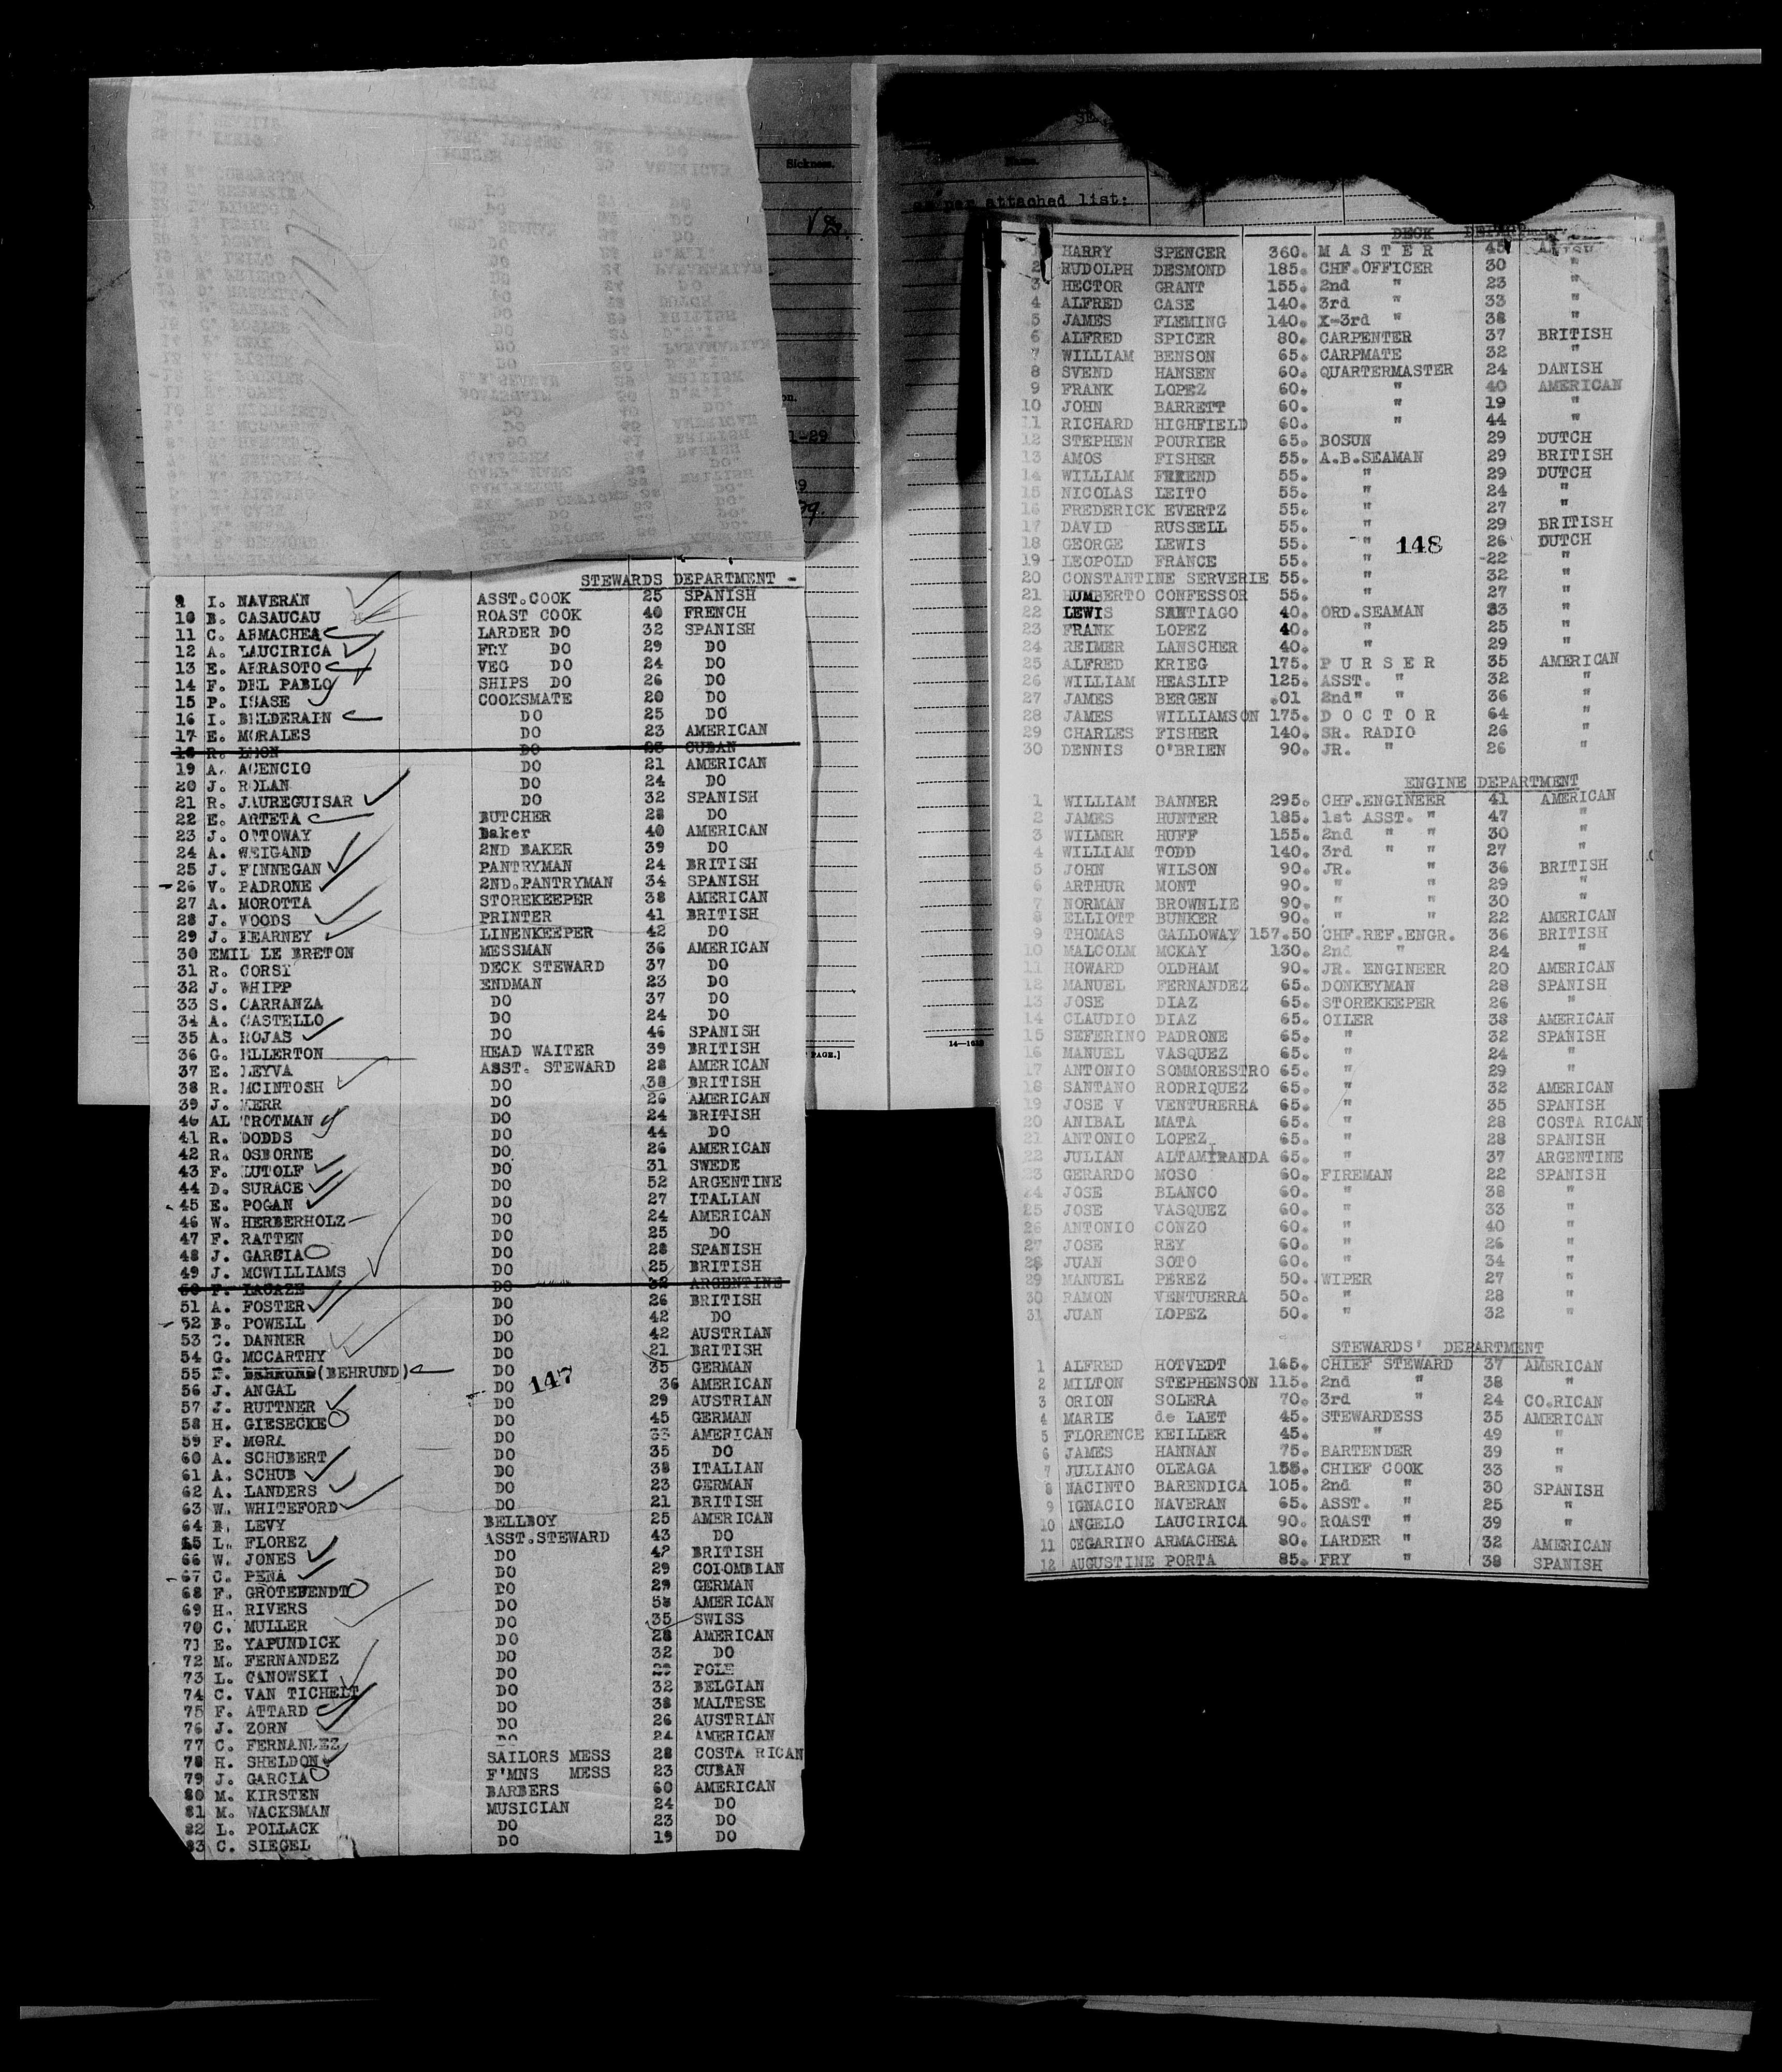 Sickness.
STEWARDS DEPARTMENT -
9 I. NAVERAN ASST.COOK 25 SPANISH
10 B. CASAUCAU ROAST COOK 40 FRENCH
11 C. ARMACHEA LARDER DO 32 SPANISH
12 A. LAUCIRICA FRY DO 29 DO
13 E. ARRASOTO VEG DO 24 DO
14 F. DEL PABLO SHIPS DO 26 DO
15 P. ISASE COOKSMATE 20 DO
16 I. BELDERAIN DO 25 DO
17 E. MORALES DO 23 AMERICAN
18 R. LEON DO 23 CUBAN
19 A. ACENCIO DO 21 AMERICAN
20 J. ROLAN DO 24 DO
21 R. JAUREGUISAR DO 32 SPANISH
22 E. ARTETA BUTCHER 28 DO
23 J. OTTOWAY Baker 40 AMERICAN
24 A. WEIGAND 2ND BAKER 39 DO
25 J. FINNEGAN PANTRYMAN 24 BRITISH
26 V. PADRONE 2ND.PANTRYMAN 34 SPANISH
27 A. MOROTTA STOREKEEPER 38 AMERICAN
28 J. WOODS PRINTER 41 BRITISH
29 J. KEARNEY LINENKEEPER 42 DO
30 EMIL LE BRETON MESSMAN 36 AMERICAN
31 R. CORSI DECK STEWARD 37 DO
32 J. WHIPP ENDMAN 23 DO
33 S. CARRANZA DO 37 DO
34 A. CASTELLO DO 24 DO
35 A. ROJAS DO 46 SPANISH
36 G. ELLERTON HEAD WAITER 39 BRITISH
37 E. LEYVA ASST. STEWARD 28 AMERICAN
38 R. MCINTOSH DO 38 BRITISH
39 J. KERR DO 26 AMERICAN
40 AL TROTMAN DO 24 BRITISH
41 R. DODDS DO 44 DO
42 R. OSBORNE DO 26 AMERICAN
43 F. LUTOLF DO 31 SWEDE
44 D. SURACE DO 52 ARGENTINE
45 E. POGAN DO 27 ITALIAN
46 W. HERBERHOLZ DO 24 AMERICAN
47 F. RATTEN DO 25 DO
48 J. GARCIA DO 28 SPANISH
49 J. MCWILLIAMS DO 25 BRITISH
50 F. LACAZE DO 32 ARGENTINE
51 A. FOSTER DO 26 BRITISH
52 B. POWELL DO 42 DO
53 C. DANNER DO 42 AUSTRIAN
54 G. MCCARTHY DO 21 BRITISH
55 F. (BEHRUND) DO 35 GERMAN
56 J. ANGAL DO 147 36 AMERICAN
57 J. RUTTNER DO 29 AUSTRIAN
58 H. GIESECKE DO 45 GERMAN
59 F. MORA DO 33 AMERICAN
60 A. SCHUBERT DO 35 DO
61 A. SCHUB DO 38 ITALIAN
62 A. LANDERS DO 23 GERMAN
63 W. WHITEFORD DO 21 BRITISH
64 R. LEVY BELLBOY 25 AMERICAN
65 L. FLOREZ ASST.STEWARD 43 DO
66 W. JONES DO 42 BRITISH
67 C. PENA DO 29 COLOMBIAN
68 F. GROTEFENDT DO 29 GERMAN
69 H. RIVERS DO 58 AMERICAN
70 C. MULLER DO 35 SWISS
71 E. YAPUNDICK DO 28 AMERICAN
72 M. FERNANDEZ DO 32 DO
73 L. GANOWSKI DO 29 POLE
74 C. VAN TICHELT DO 32 BELGIAN
75 F. ATTARD DO 38 MALTESE
76 J. ZORN DO 26 AUSTRIAN
77 C. FERNANDEZ DO 24 AMERICAN
78 H. SHELDON SAILORS MESS 28 COSTA RICAN
79 J. GARCIA F'MNS MESS 23 CUBAN
80 M. KIRSTEN BARBERS 60 AMERICAN
81 M. WACKSMAN MUSICIAN 24 DO
82 L. POLLACK DO 23 DO
83 C. SIEGEL DO 19 DO
PAGE.]
Name.
as per attached list:
DECK
1 HARRY SPENCER 360. MASTER 45
2 RUDOLPH DESMOND 185. CHF.OFFICER 30 "
3 HECTOR GRANT 155. 2nd " 23 "
4 ALFRED CASE 140. 3rd " 33 "
5 JAMES FLEMING 140. X-3rd " 38 "
6 ALFRED SPICER 80. CARPENTER 37 BRITISH
7 WILLIAM BENSON 65. CARPMATE 32 "
8 SVEND HANSEN 60. QUARTERMASTER 24 DANISH
9 FRANK LOPEZ 60. " 40 AMERICAN
10 JOHN BARRETT 60. " 19 "
11 RICHARD HIGHFIELD 60. " 44 "
12 STEPHEN POURIER 65. BOSUN 29 DUTCH
13 AMOS FISHER 55. A.B.SEAMAN 29 BRITISH
14 WILLIAM FRIEND 55. " 29 DUTCH
15 NICOLAS LEITO 55. " 24 "
16 FREDERICK EVERTZ 55. " 27 "
17 DAVID RUSSELL 55. " 29 BRITISH
18 GEORGE LEWIS 55. " 148 26 DUTCH
19 LEOPOLD FRANCE 55. " 22 "
20 CONSTANTINE SERVERIE 55. " 32 "
21 HUMBERTO CONFESSOR 55. " 27 "
22 LEWIS SANTIAGO 40. ORD.SEAMAN 33 "
23 FRANK LOPEZ 40. " 25 "
24 REIMER LANSCHER 40. " 29 "
25 ALFRED KRIEG 175. PURSER 35 AMERICAN
26 WILLIAM HEASLIP 125. ASST. " 32 "
27 JAMES BERGEN .01 2nd" " 36 "
28 JAMES WILLIAMSON 175. DOCTOR 64 "
29 CHARLES FISHER 140. SR. RADIO 26 "
30 DENNIS O'BRIEN 90. JR. " 26 "
ENGINE DEPARTMENT
1 WILLIAM BANNER 295. CHF.ENGINEER 41 AMERICAN
2 JAMES HUNTER 185. 1st ASST. " 47 "
3 WILMER HUFF 155. 2nd " " 30 "
4 WILLIAM TODD 140. 3rd " " 27 "
5 JOHN WILSON 90. JR. " 36 BRITISH
6 ARTHUR MONT 90. " " 29 "
7 NORMAN BROWNLIE 90. " " 30 "
8 ELLIOTT BUNKER 90. " " 22 AMERICAN
9 THOMAS GALLOWAY 157.50 CHF.REF.ENGR. 36 BRITISH
10 MALCOLM MCKAY 130. 2nd " 24 "
11 HOWARD OLDHAM 90. JR. ENGINEER 20 AMERICAN
12 MANUEL FERNANDEZ 65. DONKEYMAN 28 SPANISH
13 JOSE DIAZ 65. STOREKEEPER 26 "
14 CLAUDIO DIAZ 65. OILER 38 AMERICAN
15 SEFERINO PADRONE 65. " 32 SPANISH
16 MANUEL VASQUEZ 65. " 24 "
17 ANTONIO SOMMORESTRO 65. " 29 "
18 SANTANO RODRIQUEZ 65. " 32 AMERICAN
19 JOSE V VENTURERRA 65. " 35 SPANISH
20 ANIBAL MATA 65. " 28 COSTA RICAN
21 ANTONIO LOPEZ 65. " 28 SPANISH
22 JULIAN ALTAMIRANDA 65. " 37 ARGENTINE
23 GERARDO MOSO 60. FIREMAN 22 SPANISH
24 JOSE BLANCO 60. " 38 "
25 JOSE VASQUEZ 60. " 33 "
26 ANTONIO CONZO 60. " 40 "
27 JOSE REY 60. " 26 "
28 JUAN SOTO 60. " 34 "
29 MANUEL PEREZ 50. WIPER 27 "
30 RAMON VENTUERRA 50. " 28 "
31 JUAN LOPEZ 50. " 32 "
STEWARDS' DEPARTMENT
1 ALFRED HOTVEDT 165. CHIEF STEWARD 37 AMERICAN
2 MILTON STEPHENSON 115. 2nd " 38 "
3 ORION SOLERA 70. 3rd " 24 CO.RICAN
4 MARIE de LAET 45. STEWARDESS 35 AMERICAN
5 FLORENCE KEILLER 45. " 49 "
6 JAMES HANNAN 75. BARTENDER 39 "
7 JULIANO OLEAGA 155. CHIEF COOK 33 "
8 NACINTO BARENDICA 105. 2nd " 30 SPANISH
9 IGNACIO NAVERAN 65. ASST. " 25 "
10 ANGELO LAUCIRICA 90. ROAST " 39 "
11 CEGARINO ARMACHEA 80. LARDER " 32 AMERICAN
12 AUGUSTINE PORTA 85. FRY " 38 SPANISH